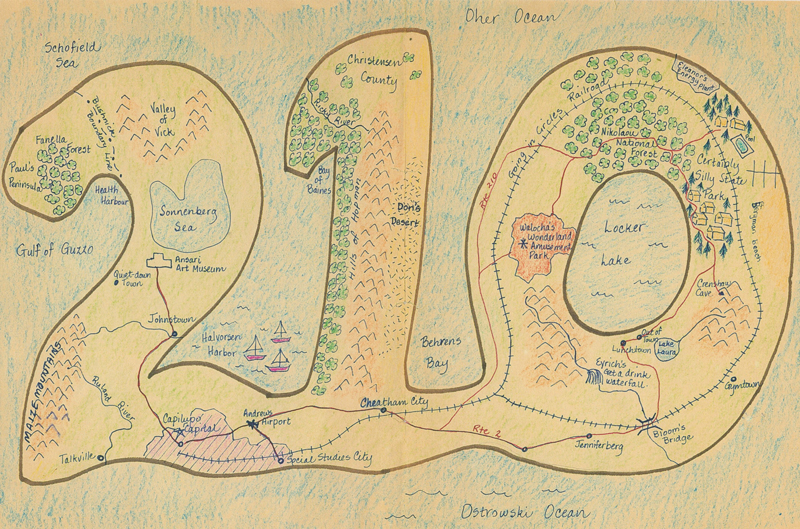 Oher Ocean
Schofield
Sea
Christensen
County
Eleanor's
Energy Plant
Bushnick
Boundary Line
Valley
of
Vick
Ricks River
Going in Circles Railroad
Nikolaou
National
Forest
Pool
Certainly
Silly State
Park
Fanella
Forest
Paul's
Peninsula
Health
Harbour
Sonnenberg
Sea
Bay
of
Baines
Hills of Hopman
Don's
Desert
Rte 210
Bergman Beach
Walocha's
Wonderland
Amusement
Park
Locker
Lake
Gulf of Guzzo
Ansari
Art Museum
Quiet-down
Town
Crenshaw
Cave
Johnstown
Halvorsen
Harbor
Behrens
Bay
Out of
Town
Lunchtown
Lake
Laura
MAIZE MOUNTAINS
Ryland River
Eyrich's
Get a drink
waterfall
Gymtown
Capilupo
Capital
Andrew's
Airport
Cheatham City
Rte 2
Jenniferberg
Bloom's
Bridge
Talkville
Social Studies City
Ostrowski Ocean